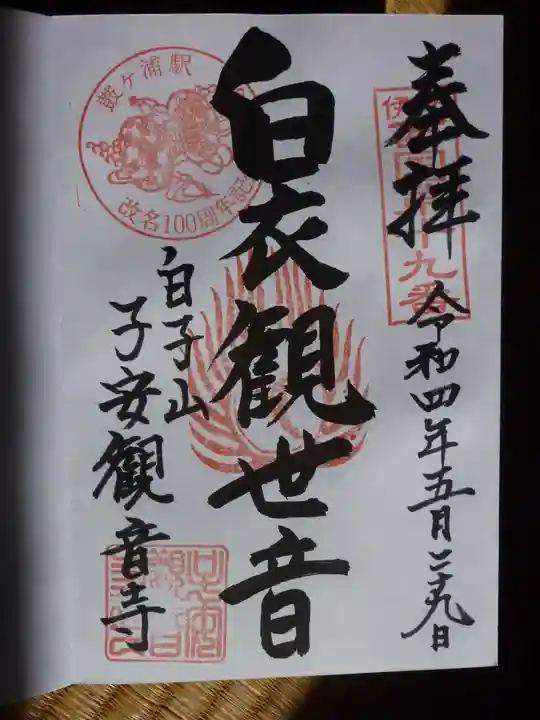 奉拝
令和四年五月二十九日
白衣観世音
白子山
子安観音寺
鼓ヶ浦駅
改名100周年記
九番